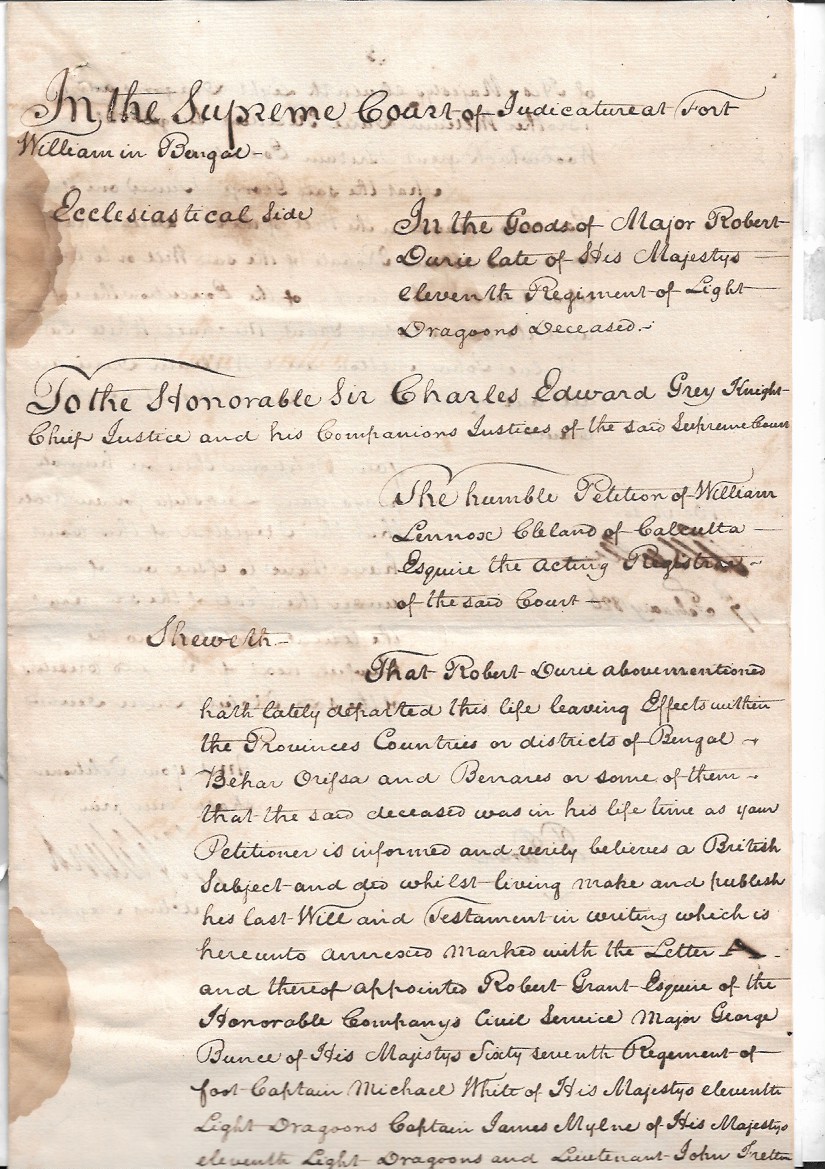 In the Supreme Court of Judicature at Fort
William in Bengal
Ecclesiastical Side
In the Goods of Major Robert
Durie late of His Majestys
eleventh Regiment of Light
Dragoons Deceased.
To the Honorable Sir Charles Edward Grey Knight
Chief Justice and his Companions Justices of the said Supreme Court
The humble Petition of William
Lennox Cleland of Calcutta
Esquire the acting Registrar
of the said Court
Sheweth
That Robert Durie abovementioned
hath lately departed this life leaving Effects within
the Provinces Countries or districts of Bengal
Behar Orissa and Benares or some of them
that the said deceased was in his life time as your
Petitioner is informed and verily believes a British
Subject and did whilst living make and publish
his last Will and Testament in writing which is
hereunto annexed marked with the Letter A
and thereof appointed Robert Grant Esquire of the
Honorable Companys Civil Service Major George
Bunce of His Majestys Sixty seventh Regement of
foot Captain Michael White of His Majestys eleventh
Light Dragoons Captain James Mylne of His Majestys
eleventh Light Dragoons and Lieutenant John